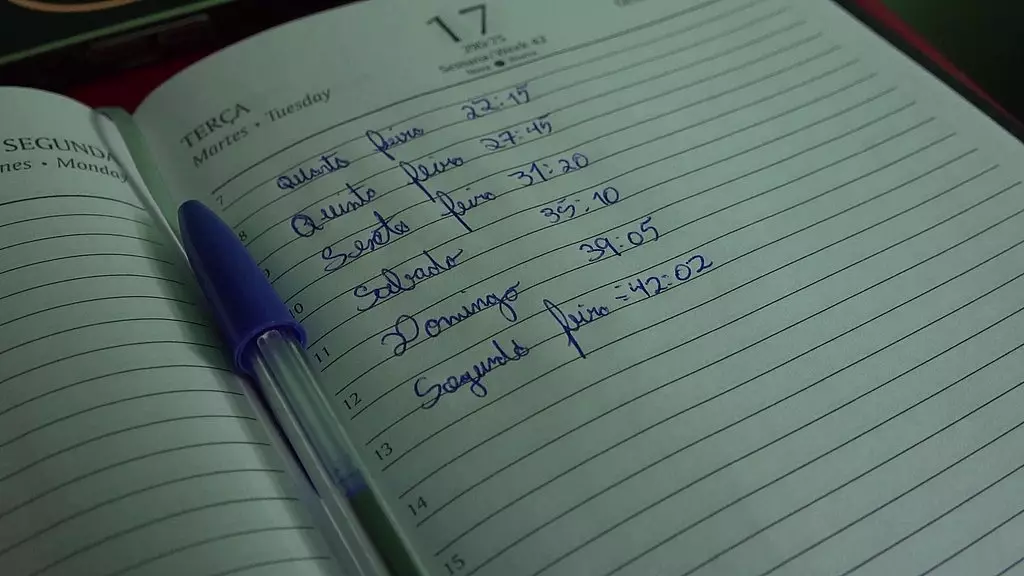 SEGUNDA
nes • Monday
17
290/75
Semana/Week 42
TERÇA
Martes • Tuesday
7
quarta feira 22:15
8
Quinta feira 27:45
9
Sexta feira 31:20
10
Sabado 35:10
11
Domingo 39:05
12
Segunda feira = 42:02
13
14
15